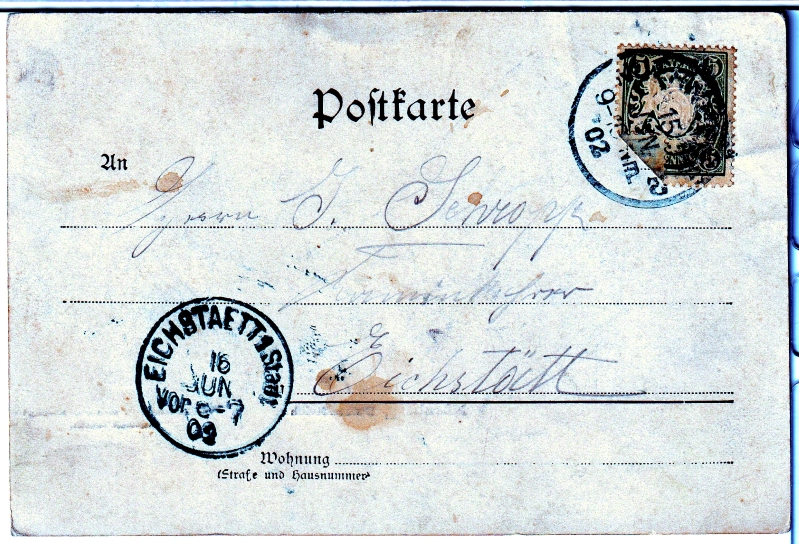 Postkarte
An
Herrn J. Schropp
Kaminkehrer
Eichstätt
EICHSTAETT 1 Stadt
16
JUN
Vor 6-7
02
15
JUN
9-
02
5
5
Wohnung
(Straße und Hausnummer)